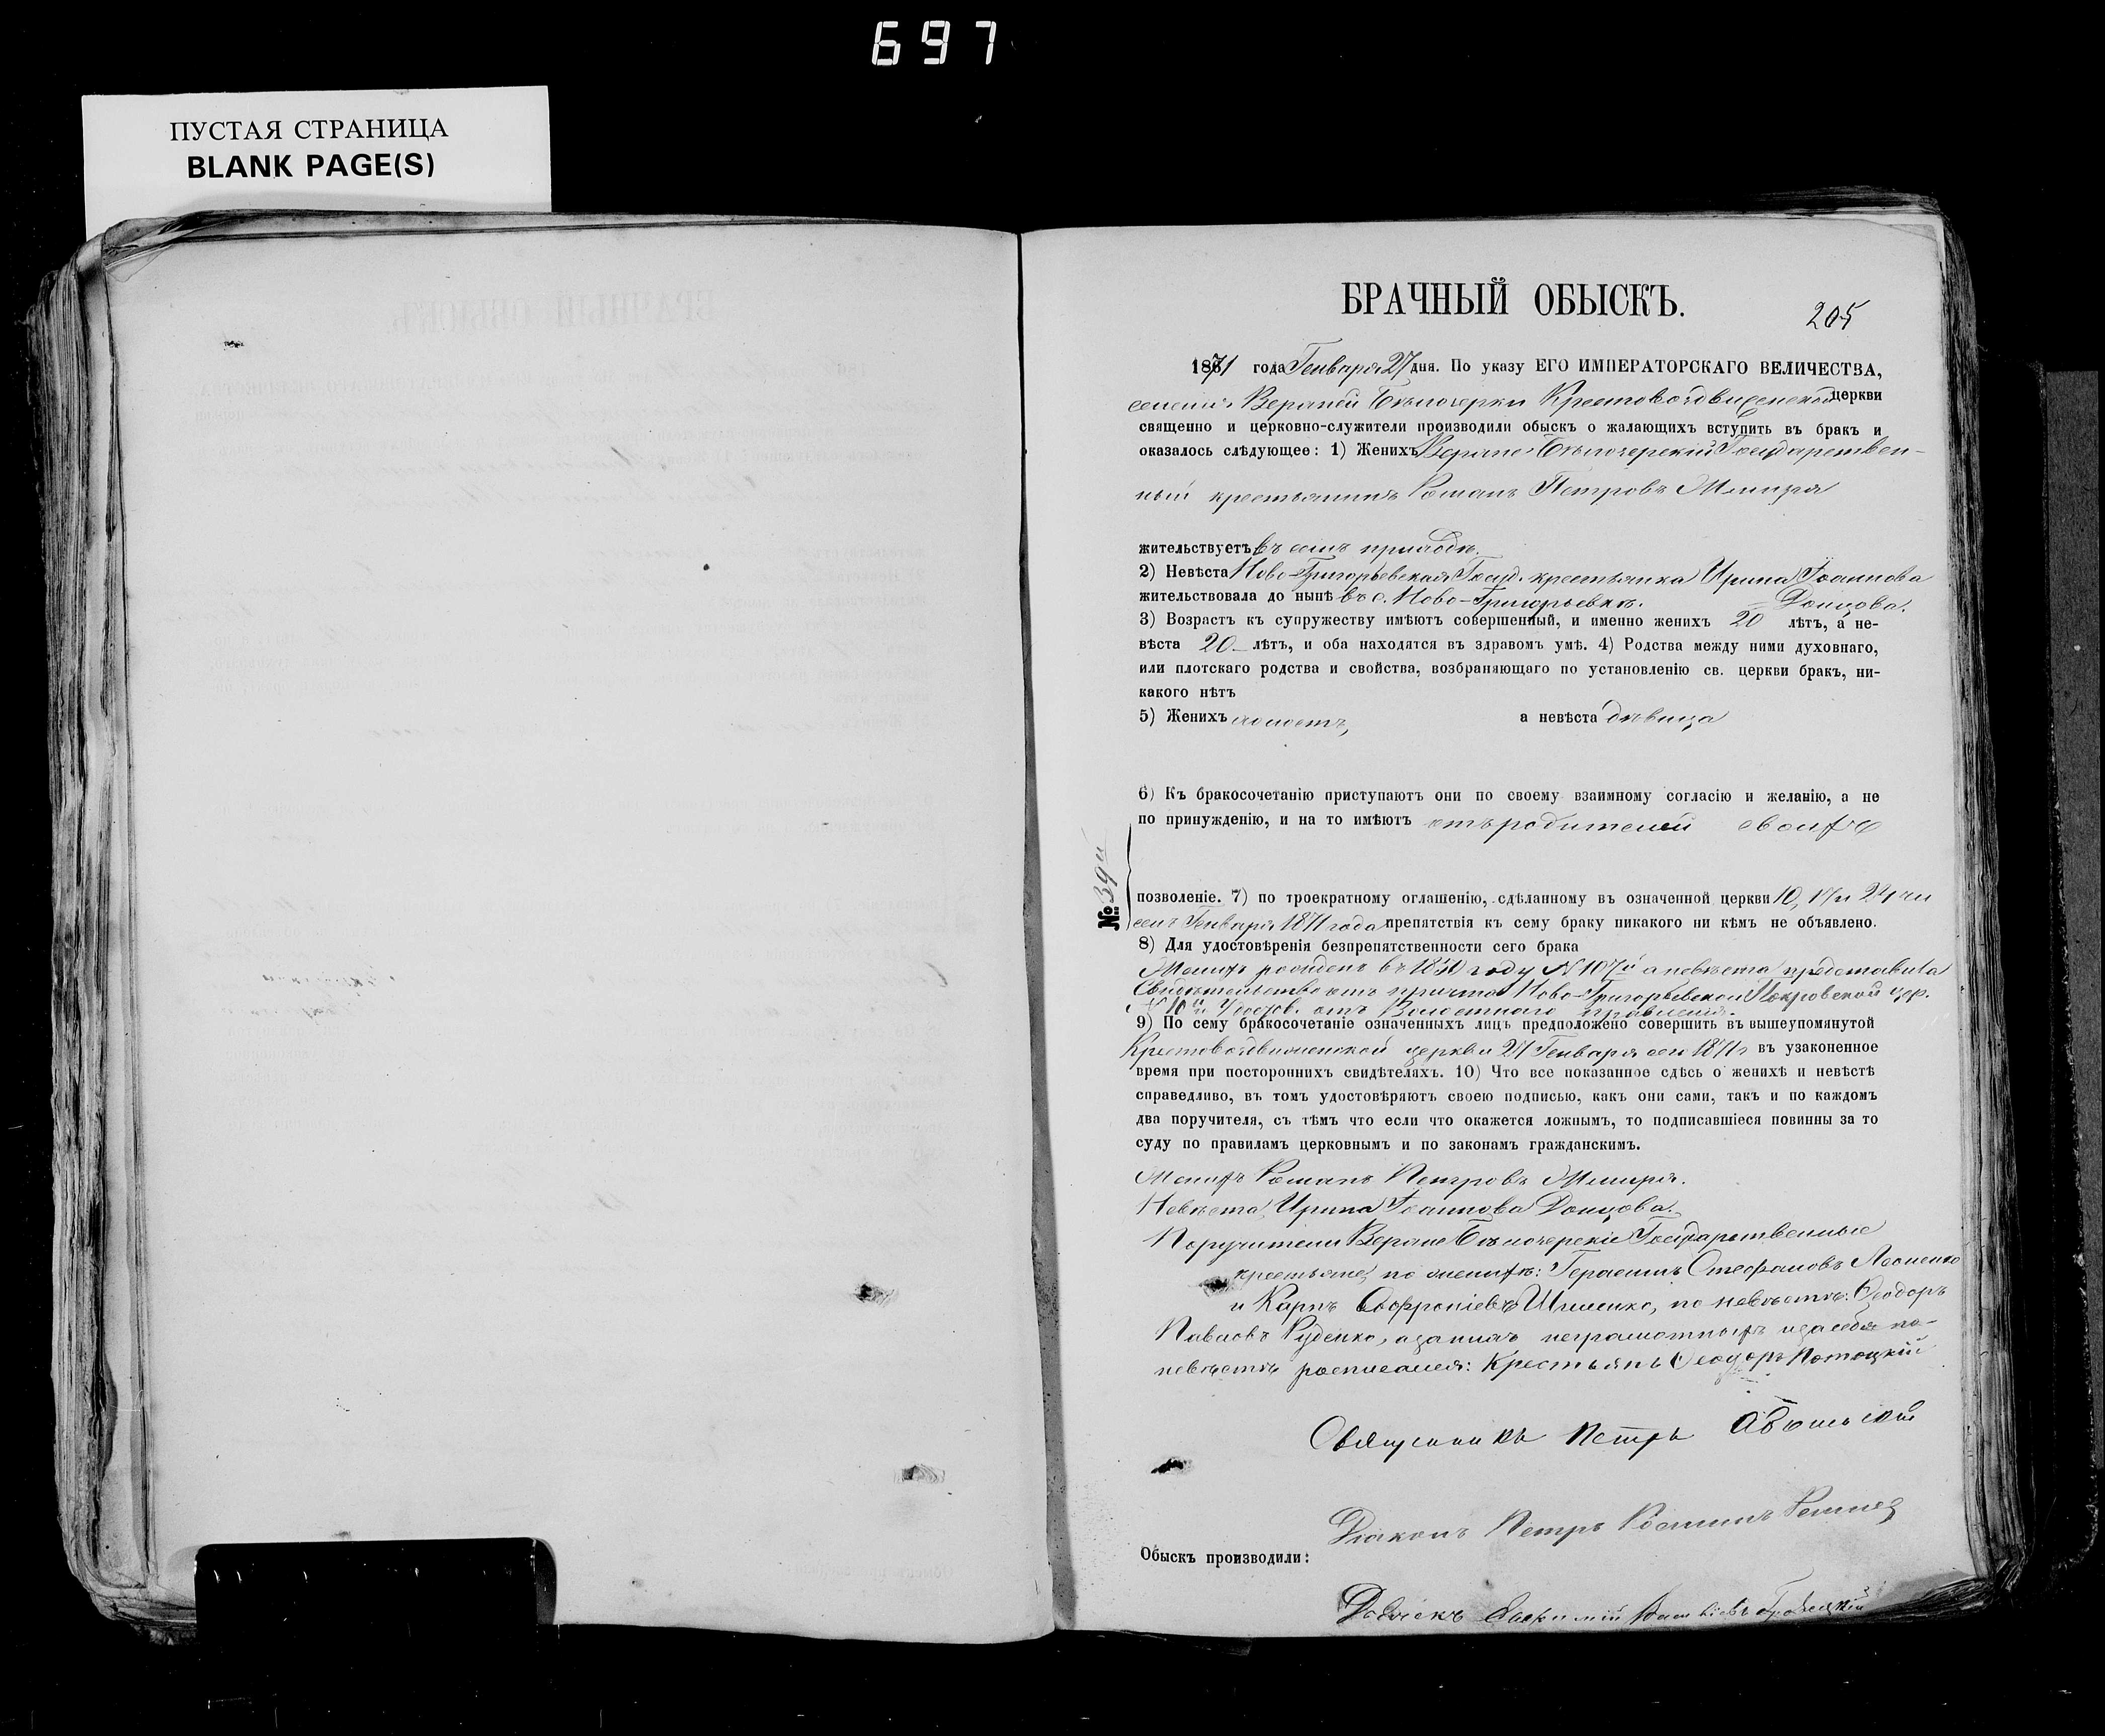 697
ПУСТАЯ СТРАНИЦА
BLANK PAGE(S)
БРАЧНЫЙ ОБЫСКЪ.
205
1871 года Генваря 27 дня. По указу ЕГО ИМПЕРАТОРСКАГО ВЕЛИЧЕСТВА,
селенія Верхней Бѣлозерки Крестовоздвиженской церкви
священно и церковно-служители производили обыскъ о жалающихъ вступить въ бракъ и
оказалось слѣдующее: 1) Женихъ Верхне Бѣлозерскій Государствен-
ный крестьянинъ Романъ Петровъ
жительствуетъ въ семъ приходѣ.
2) Невѣста Ново-Григорьевская Госуд. крестьянка Ирина Іоаннова
Донцова.
жительствовала до нынѣ въ с. Ново-Григорьевкѣ.
3) Возрастъ къ супружеству имѣютъ совершенный, и именно женихъ 20 лѣтъ, а не-
вѣста 20 лѣтъ, и оба находятся въ здравомъ умѣ. 4) Родства между ними духовнаго,
или плотскаго родства и свойства, возбраняющаго по установленію св. церкви бракъ, ни-
какого нѣтъ
5) Женихъ холостъ, а невѣста дѣвица
6) Къ бракосочетанію приступаютъ они по своему взаимному согласію и желанію, а не
по принужденію, и на то имѣютъ отъ родителей своихъ
№ 39й
позволеніе. 7) по троекратному оглашенію, сдѣланному въ означенной церкви 10, 17 и 24 чи
селъ Генваря 1871 года препятствія къ сему браку никакого ни кѣмъ не объявлено.
8) Для удостовѣренія безпрепятственности сего брака
Женихъ рожденъ въ 1850 году № 107й а невѣста представила
Свидѣтельство отъ причта Ново-Григорьевской Покровской цер.
№ 10й и Удостов. отъ Волостнаго правленія.
9) По сему бракосочетаніе означенныхъ лицъ предположено совершить въ вышеупомянутой
Крестовоздвиженской церкви 27 Генваря сего 1871 г въ узаконенное
время при постороннихъ свидѣтеляхъ. 10) Что все показанное сдѣсь о женихѣ и невѣстѣ
справедливо, въ томъ удостовѣряютъ своею подписью, какъ они сами, такъ и по каждомъ
два поручителя, съ тѣмъ что если что окажется ложнымъ, то подписавшіеся повинны за то
суду по правиламъ церковнымъ и по законамъ гражданскимъ.
Женихъ Романъ Петровъ
Невѣста, Ирина Іоаннова Донцова.
Поручители Верхне Бѣлозерскіе Государственные
крестьяне, по женихѣ: Герасимъ Стефановъ
и Карпъ Софроніевъ по невѣстѣ: Ѳеодоръ
Павловъ Руденко, а за нихъ неграмотныхъ и за себя по
невѣстѣ росписался: Крестьянъ Ѳеодоръ Потоцкій
Священникъ Петръ
Діаконъ Петръ
Обыскъ производили: